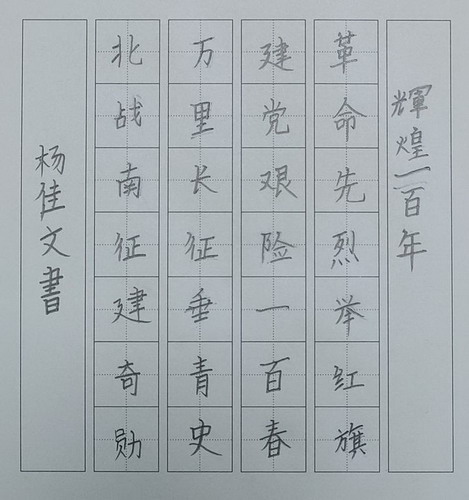 輝煌一百年
革命先烈举红旗
建党艰险一百春
万里长征垂青史
北战南征建奇勋
杨佳文書